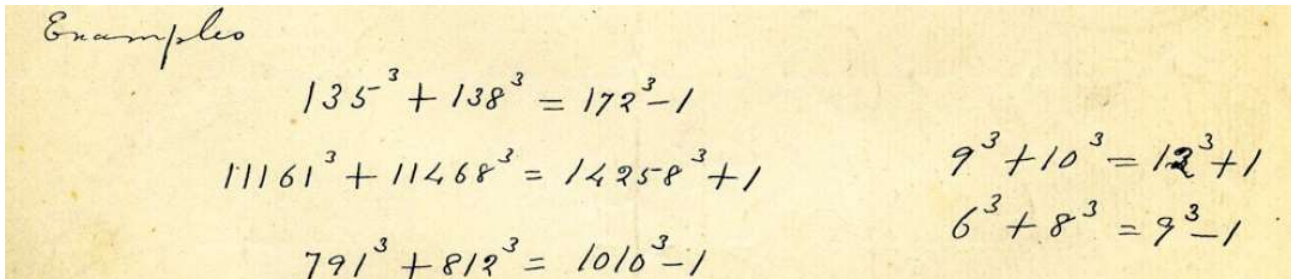 Examples
135³ + 138³ = 172³ - 1
11161³ + 11468³ = 14258³ + 1
791³ + 812³ = 1010³ - 1
9³ + 10³ = 12³ + 1
6³ + 8³ = 9³ - 1